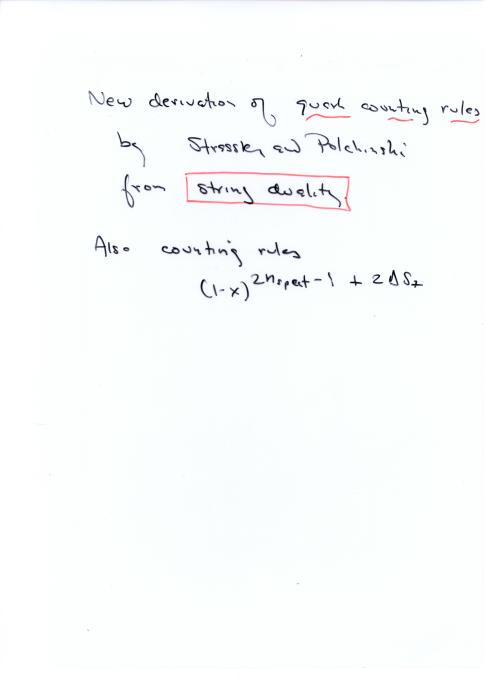 New derivation of quark counting rules
by Strassler and Polchinski
from string duality
Also counting rules
(1-x)^{2n_{spect}-1+2ΔS_z}